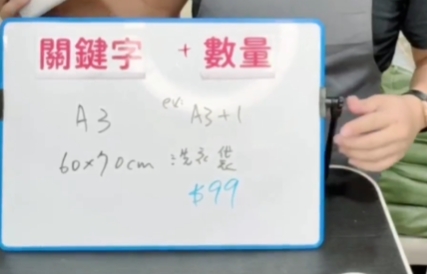 關鍵字 + 數量
A3 ex: A3+1
60x70cm 洗衣袋
$99